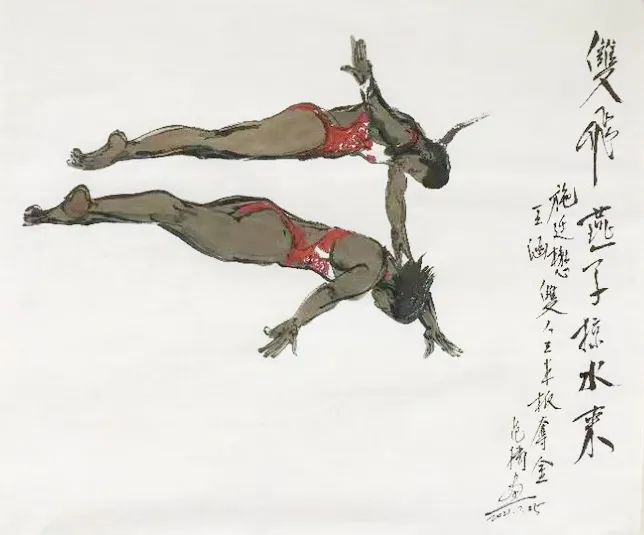 雙飛燕子掠水來
施廷懋
王涵
雙人三米板奪金
畫
2021.7.25